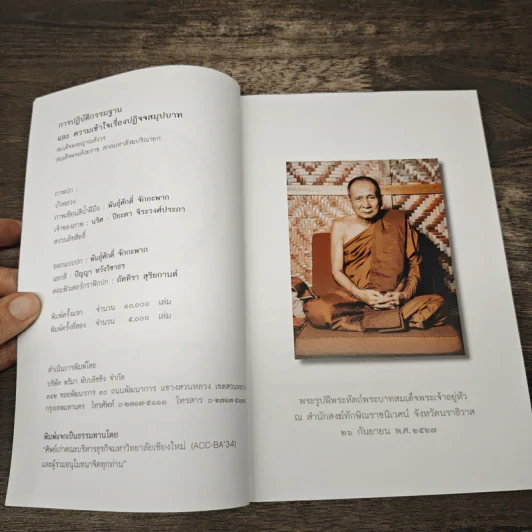 การปฏิบัติกรรมฐาน
และ ความเข้าใจเรื่องปฏิจจสมุปบาท
สมเด็จพระญาณสังวร
สมเด็จพระสังฆราช สกลมหาสังฆปริณายก
ภาพปก :
บัวหลวง
ภาพเขียนสีน้ำฝีมือ : พันธุ์ศักดิ์ จักกะพาก
เจ้าของภาพ : นริศ - ปิยะดา จิระวงศ์ประภา
สงวนลิขสิทธิ์
ออกแบบปก : พันธุ์ศักดิ์ จักกะพาก
แยกสี : ปัญญา หวังวิชาธร
คอมพิวเตอร์กราฟิกปก : ภัททิรา สุริยกานต์
พิมพ์ครั้งแรก จำนวน ๑๐,๐๐๐ เล่ม
พิมพ์ครั้งที่สอง จำนวน ๕,๐๐๐ เล่ม
ดำเนินการพิมพ์โดย
บริษัท พรีมา พับบลิชชิง จำกัด
ซอยพัฒนาการ ๓๐ ถนนพัฒนาการ แขวงสวนหลวง เขตสวนหลวง
กรุงเทพมหานคร โทรศัพท์ โทรสาร
พิมพ์แจกเป็นธรรมทานโดย
"ศิษย์เก่าคณะบริหารธุรกิจมหาวิทยาลัยเชียงใหม่ (ACC-BA'34)
และผู้ร่วมอนุโมทนาจิตทุกท่าน"
พระรูปฝีพระหัตถ์พระบาทสมเด็จพระเจ้าอยู่หัว
ณ สำนักสงฆ์ทักษิณราชนิเวศน์ จังหวัดนราธิวาส
๒๖ กันยายน พ.ศ. ๒๕๒๗